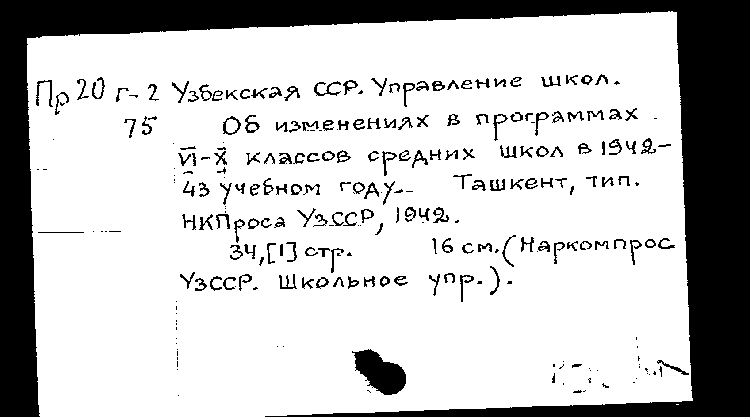 Пр20 г-2 Узбекская ССР. Управление школ.
75 Об изменениях в программах
VI-X классов средних школ в 1942-
43 учебном году.- Ташкент, тип.
НКПроса УзССР, 1942.
34,[1] стр. 16 см. (Наркомпрос
УзССР. Школьное упр.).